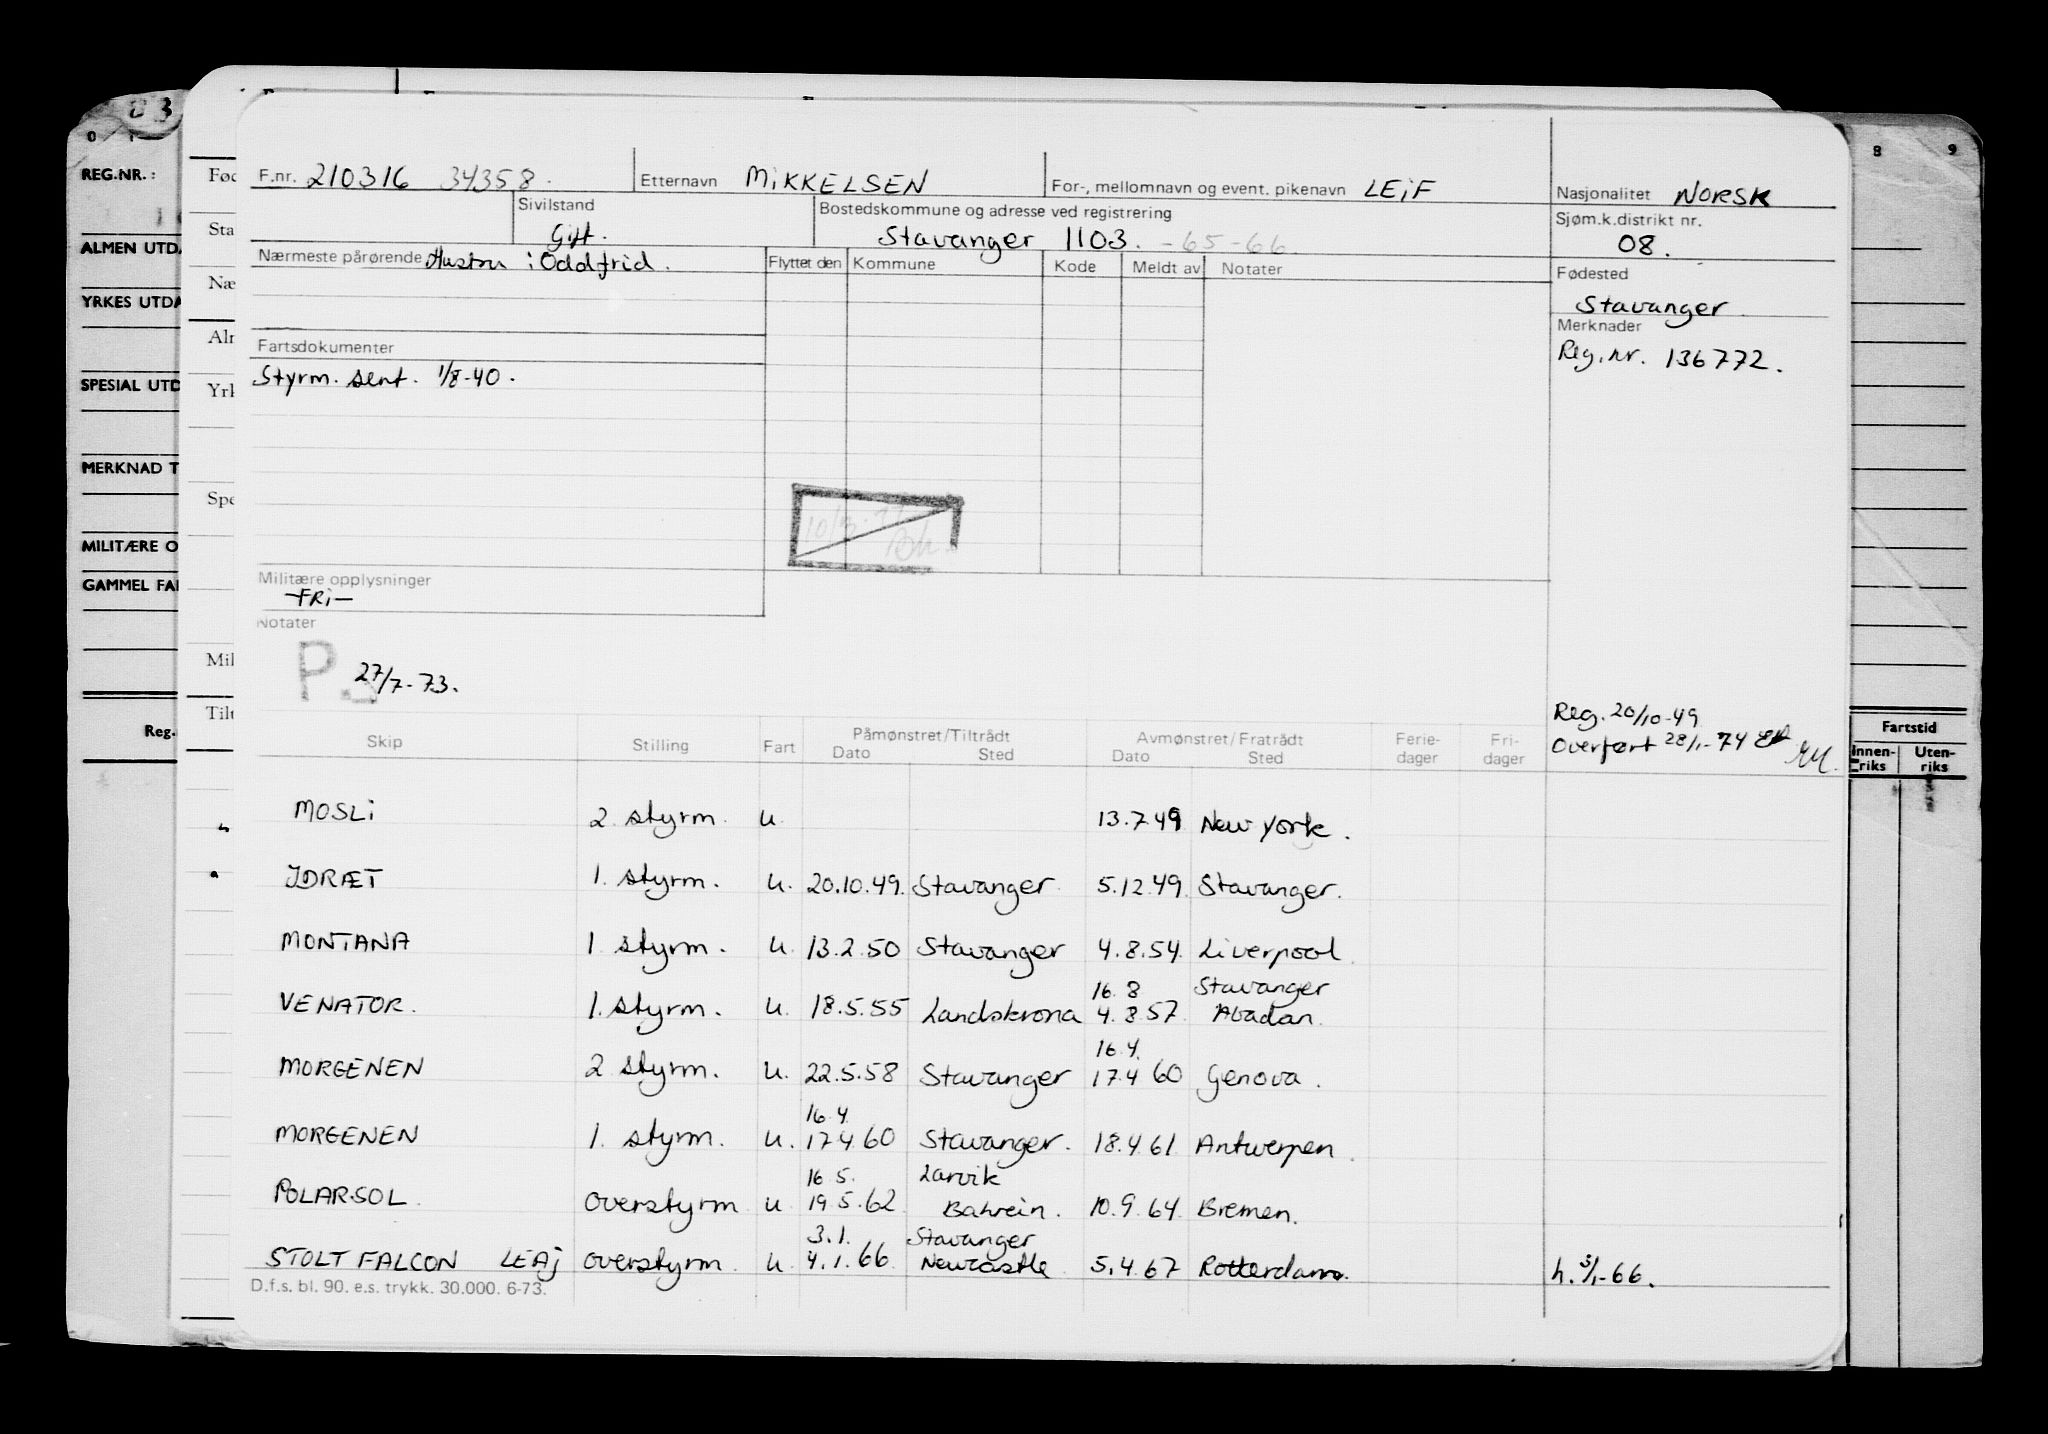 0 1 8 9
REG.NR.:
ALMEN UTDA
YRKES UTDA
SPESIAL UTD
MERKNAD T
MILITÆRE O
GAMMEL FA
Reg.
Fød
Sta
Næ
Alr
Yrk
Spe
Mil
Tilt
F.nr. 210316 34358. Etternavn MIKKELSEN For-, mellomnavn og event. pikenavn LEIF Nasjonalitet NORSK
Sivilstand Gift. Bostedskommune og adresse ved registrering Stavanger 1103. -65-66 Sjøm.k.distrikt nr. 08.
Nærmeste pårørende Hustru : Oddfrid. Flyttet den Kommune Kode Meldt av Notater Fødested
Stavanger
Merknader
Reg.nr. 136772.
Fartsdokumenter
Styrm. sert. 1/8-40.
Militære opplysninger
-FRI-
Notater
27/7-73.
Reg. 20/10-49
Overført 28/1-74
Skip Stilling Fart Påmønstret/Tiltrådt Dato Sted Avmønstret/Fratrådt Dato Sted Ferie-dager Fri-dager
Fartstid
Innen-riks Uten-riks
MOSLI 2 styrm. u. 13.7.49 New York.
IDRÆT 1. styrm. u. 20.10.49. Stavanger 5.12.49. Stavanger.
MONTANA 1. styrm. u. 13.2.50 Stavanger 4.8.54. Liverpool
16.8 Stavanger
VENATOR. 1. styrm. u. 18.5.55 Landskrona 4.8.57. Abadan.
16.4.
MORGENEN 2 styrm. u. 22.5.58 Stavanger 17.4 60 Genova.
16.4.
MORGENEN 1. styrm. u. 17.4 60 Stavanger. 18.4.61 Antwerpen.
16.5. Larvik
POLARSOL. overstyrm u 19.5.62 Bahrein. 10.9.64. Bremen.
3.1. Stavanger
STOLT FALCON LEAJ overstyrm. u. 4.1.66 Newcastle 5.4.67 Rotterdam. h. 3/1-66.
D.f.s. bl. 90. e.s. trykk. 30.000. 6-73.